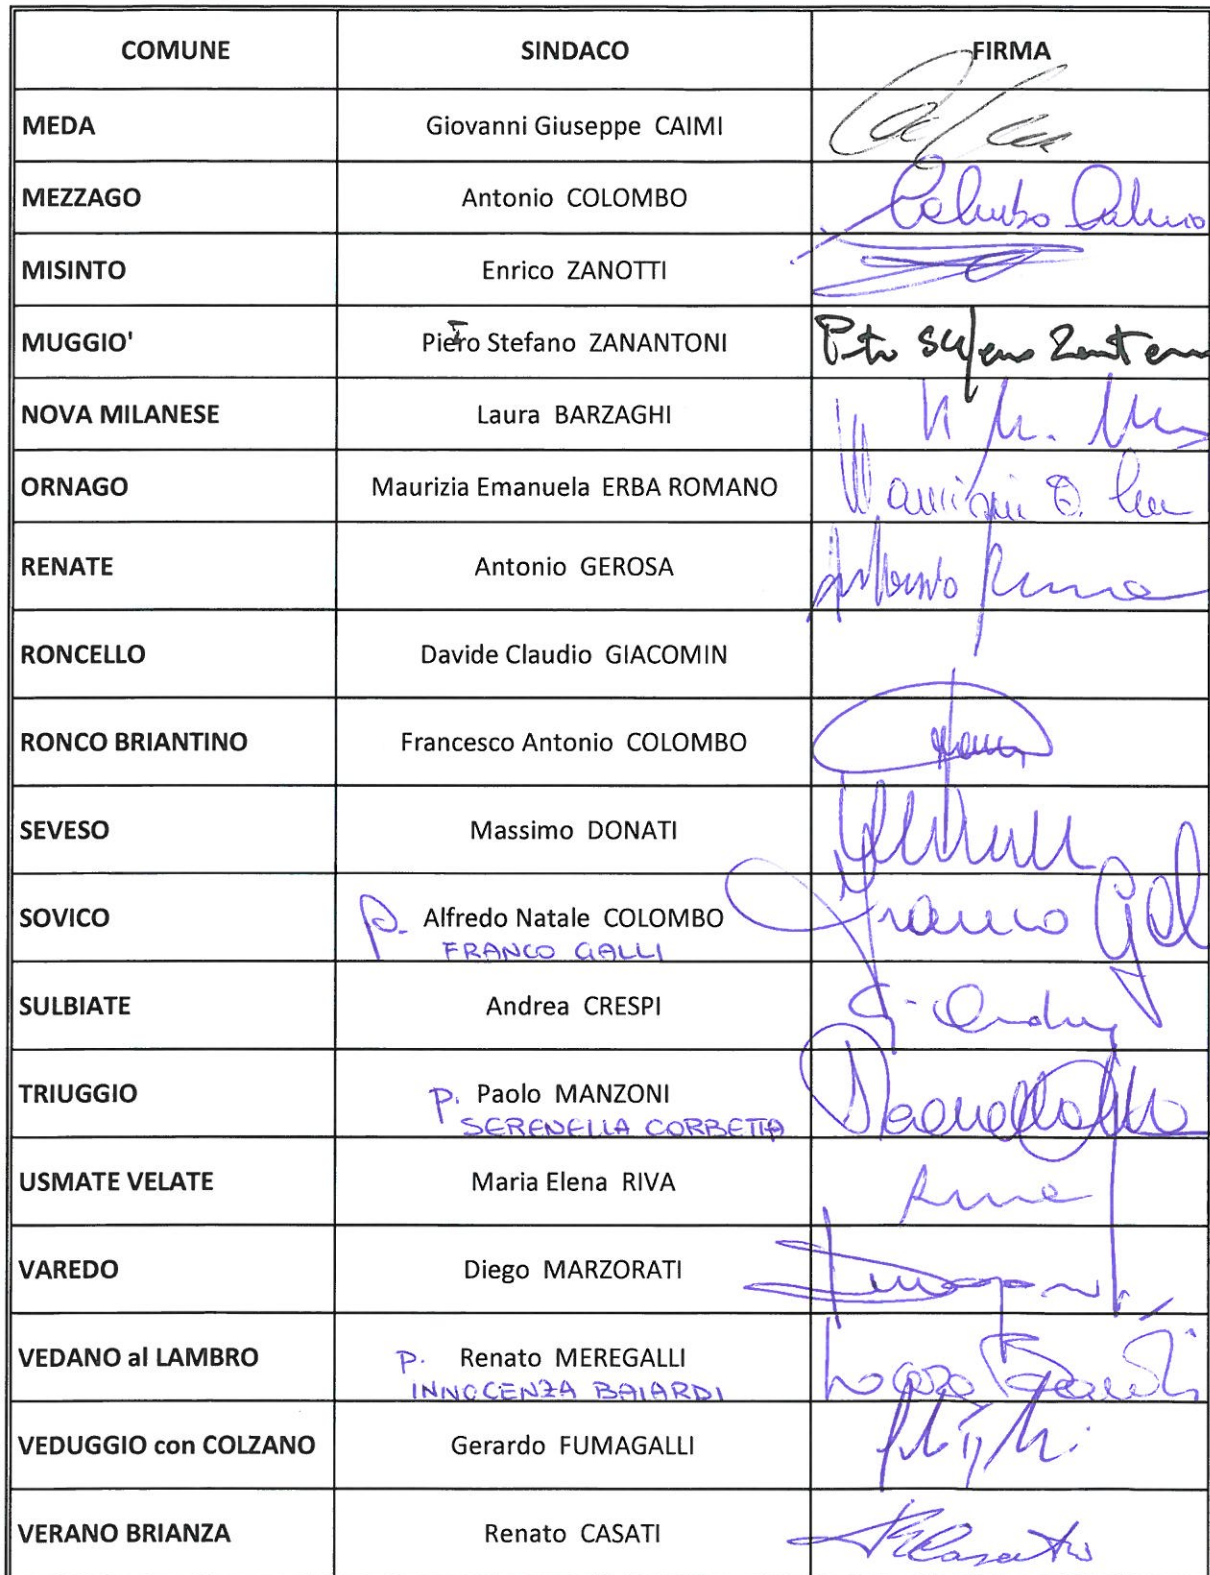 COMUNE SINDACO FIRMA
MEDA Giovanni Giuseppe CAIMI
MEZZAGO Antonio COLOMBO Colombo
MISINTO Enrico ZANOTTI
MUGGIO' Piero Stefano ZANANTONI
NOVA MILANESE Laura BARZAGHI
ORNAGO Maurizia Emanuela ERBA ROMANO
RENATE Antonio GEROSA
RONCELLO Davide Claudio GIACOMIN
RONCO BRIANTINO Francesco Antonio COLOMBO
SEVESO Massimo DONATI
SOVICO p. Alfredo Natale COLOMBO Franco
FRANCO GALLI
SULBIATE Andrea CRESPI
TRIUGGIO P. Paolo MANZONI
SERENELLA CORBETTA
USMATE VELATE Maria Elena RIVA
VAREDO Diego MARZORATI
VEDANO al LAMBRO P. Renato MEREGALLI
INNOCENZA BAIARDI
VEDUGGIO con COLZANO Gerardo FUMAGALLI
VERANO BRIANZA Renato CASATI